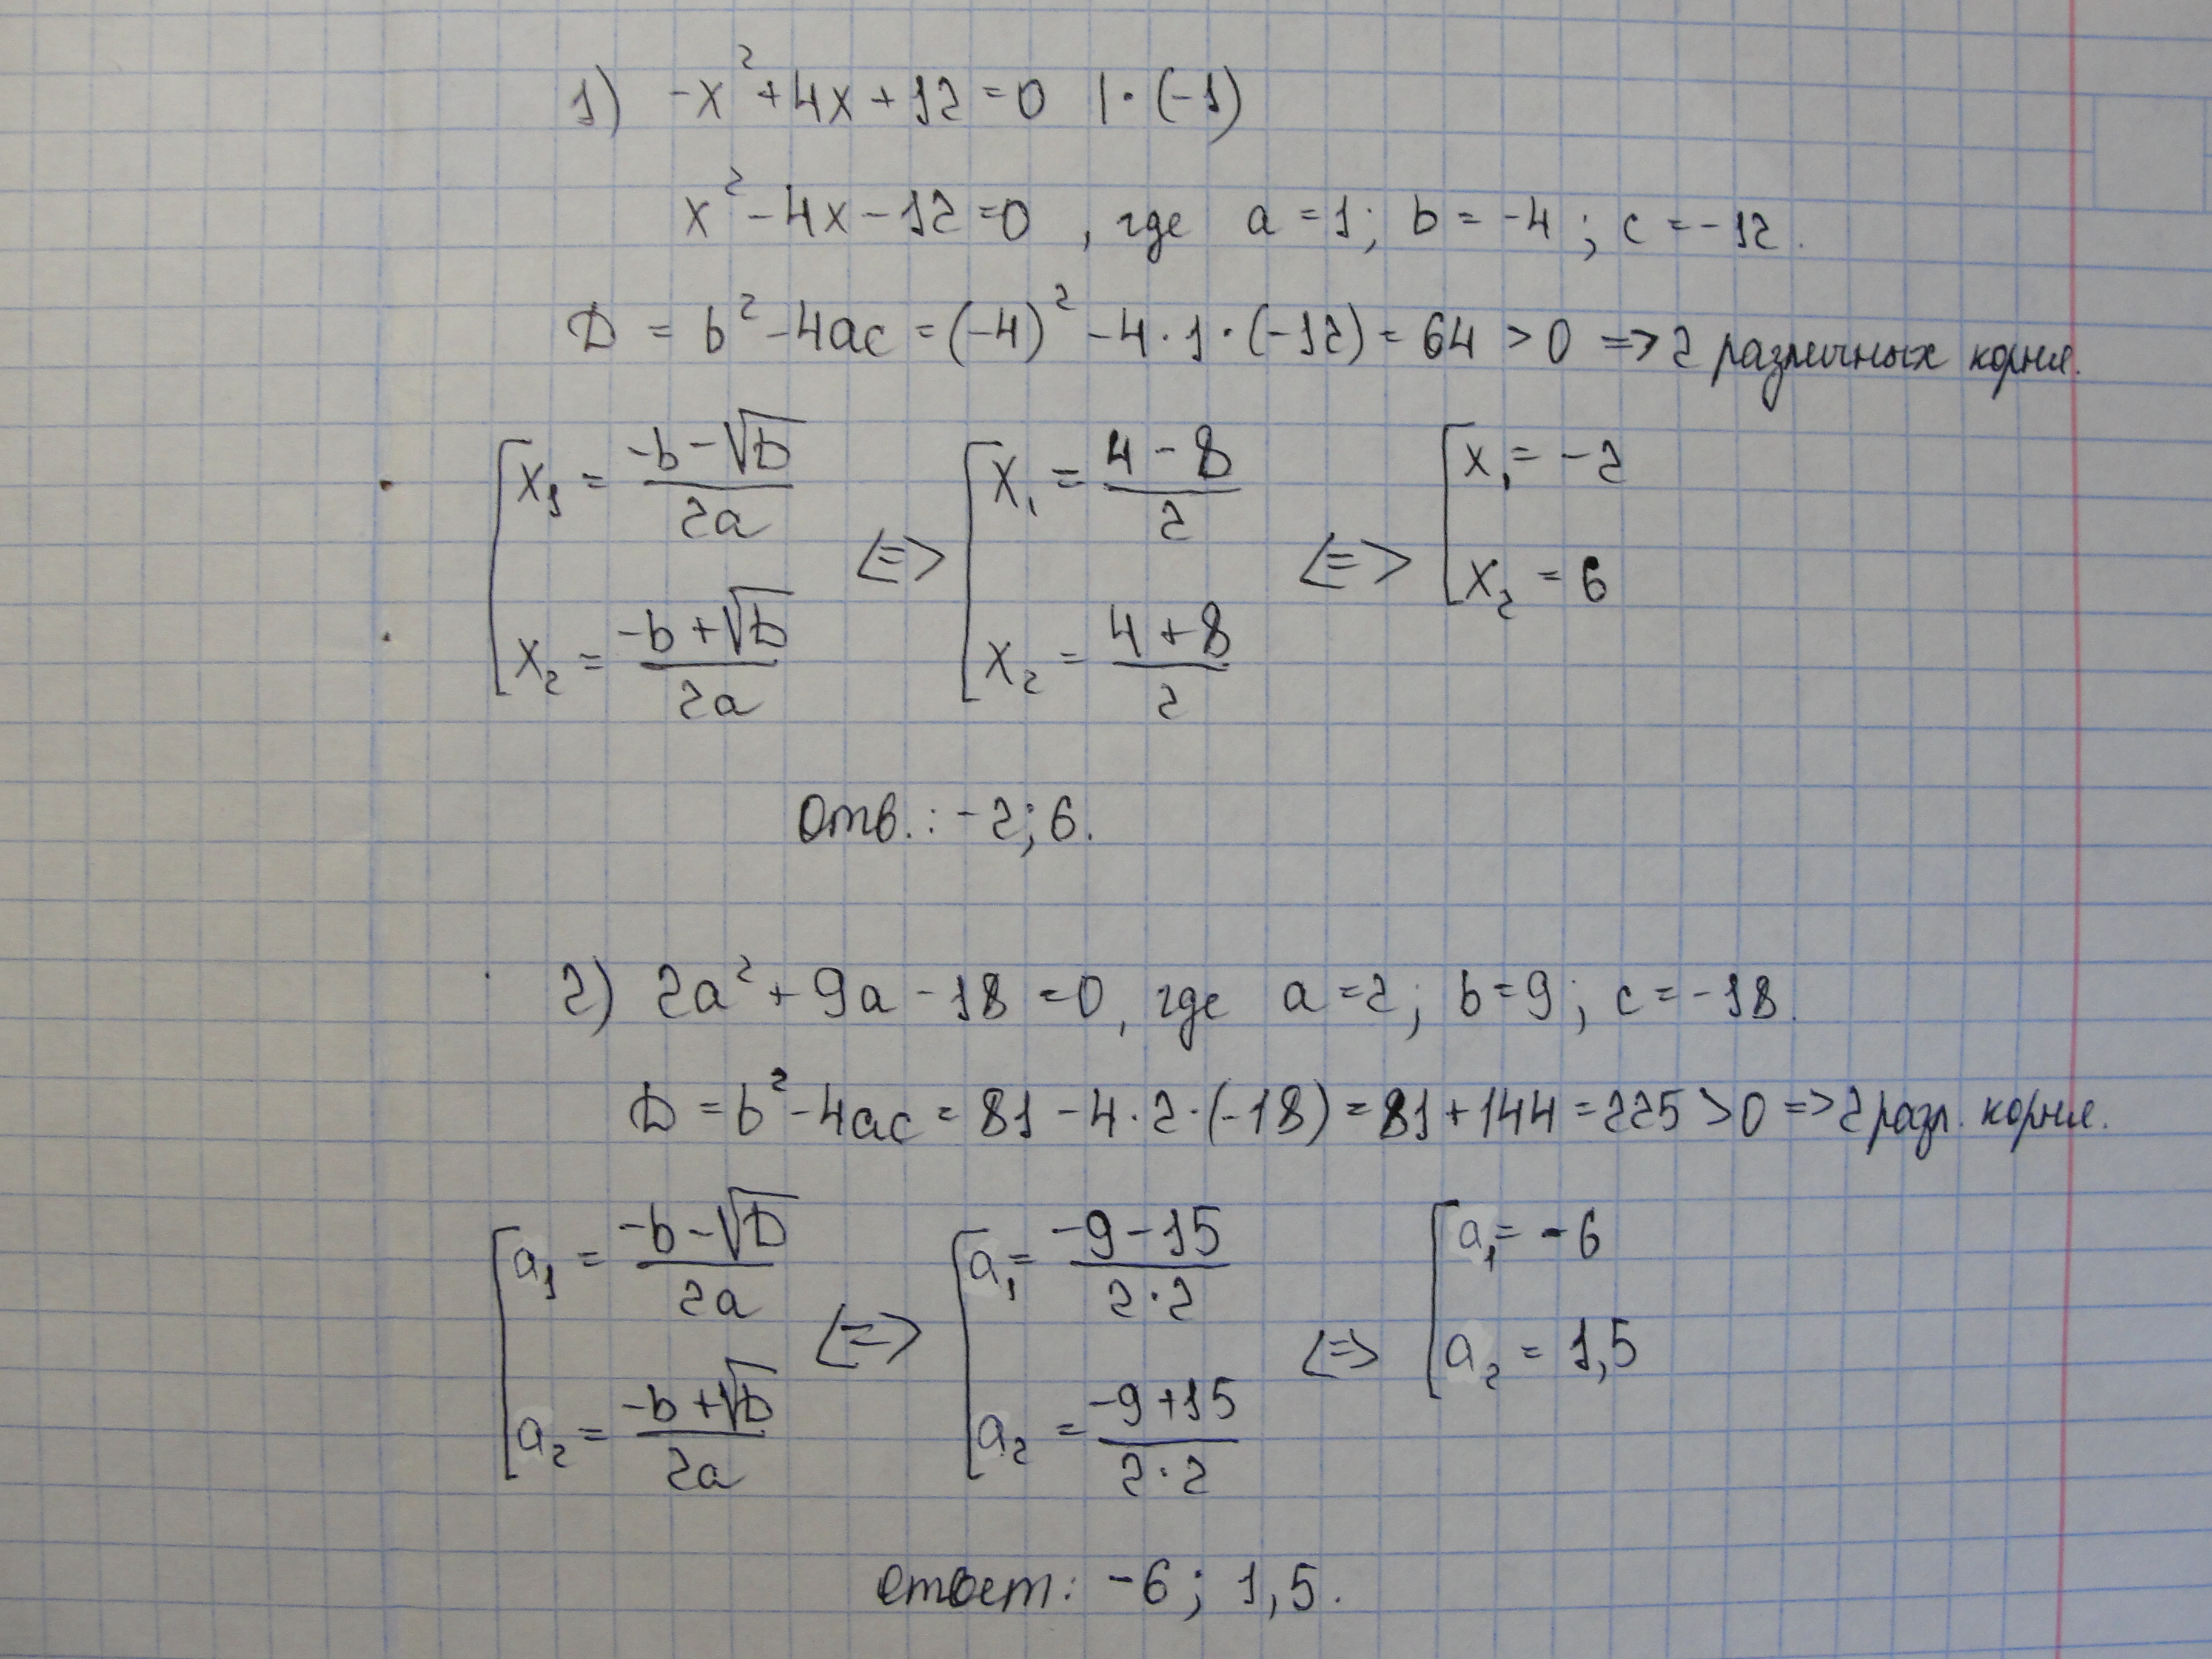 1) -x² + 4x + 12 = 0 | · (-1)
x² - 4x - 12 = 0 , где a = 1; b = -4; c = -12.
D = b² - 4ac = (-4)² - 4 · 1 · (-12) = 64 > 0 => 2 различных корня.
[ x₁ = (-b - √D)/(2a) <=> [ x₁ = (4 - 8)/2 <=> [ x₁ = -2
x₂ = (-b + √D)/(2a) x₂ = (4 + 8)/2 x₂ = 6
Отв.: -2; 6.
2) 2a² + 9a - 18 = 0, где a = 2; b = 9; c = -18.
D = b² - 4ac = 81 - 4 · 2 · (-18) = 81 + 144 = 225 > 0 => 2 разл. корня.
[ a₁ = (-b - √D)/(2a) <=> [ a₁ = (-9 - 15)/(2 · 2) <=> [ a₁ = -6
a₂ = (-b + √D)/(2a) a₂ = (-9 + 15)/(2 · 2) a₂ = 1,5
ответ: -6; 1,5.